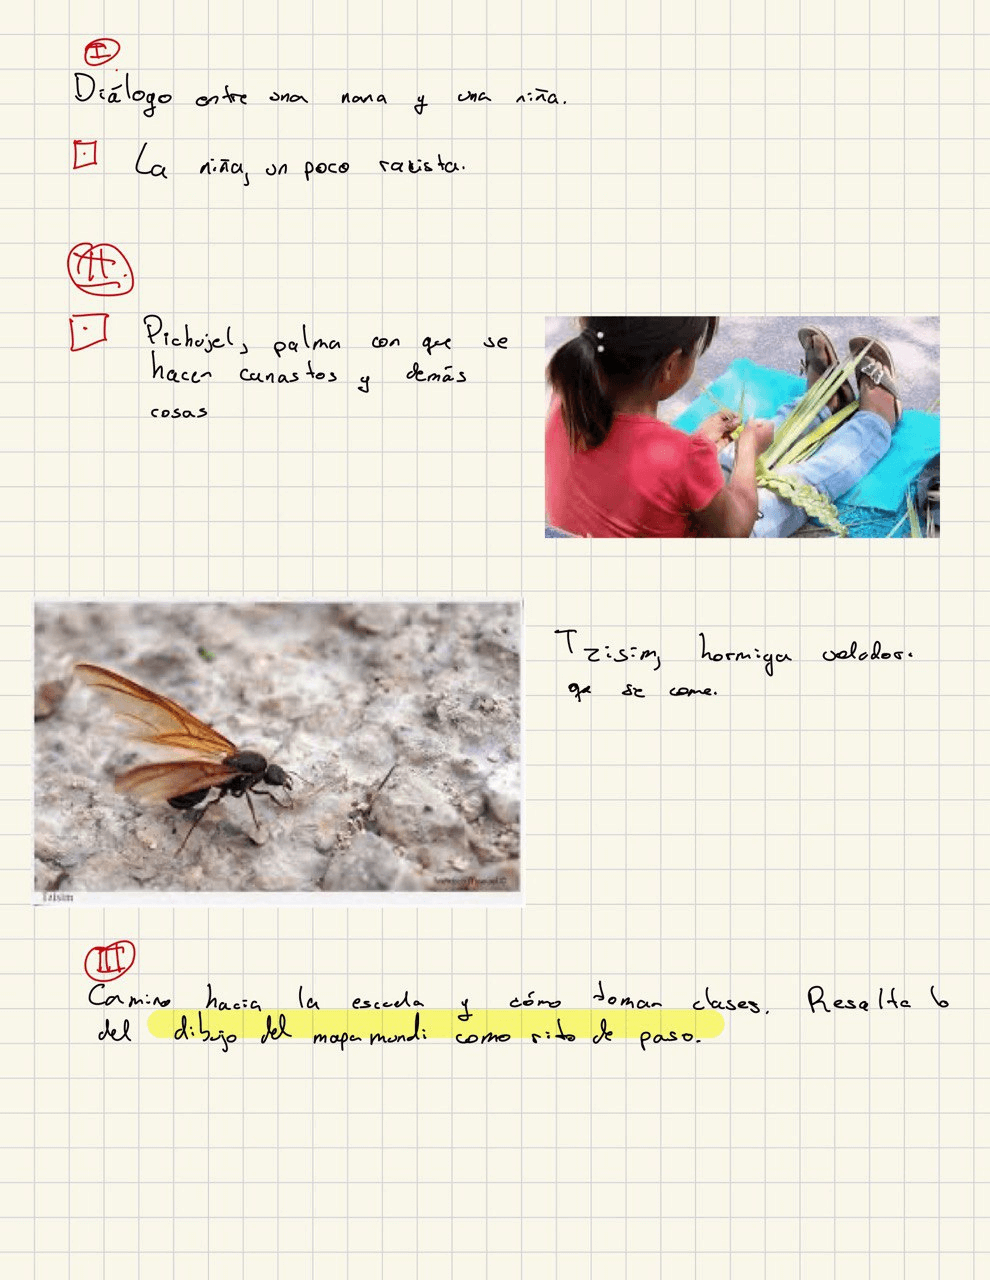 I
Diálogo entre una nana y una niña.
La niña, un poco racista.
II
Pichujel, palma con que se
hacen canastos y demás
cosas
Tzisim, hormiga voladora
que se come.
Tzisim
III
Camino hacia la escuela y cómo toman clases. Resalta lo
del dibujo del mapa mundi como rito de paso.